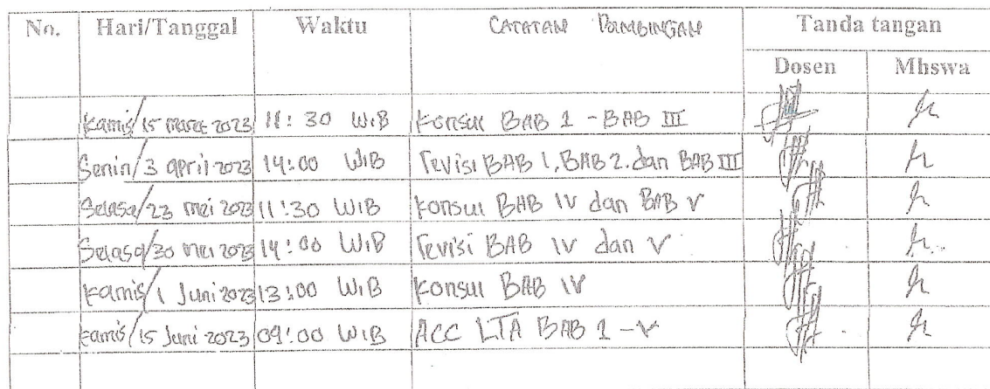 No. Hari/Tanggal Waktu CATATAN BIMBINGAN Tanda tangan
Dosen Mhswa
Kamis/15 maret 2023 11:30 WIB Konsul BAB 1 - BAB III
Senin/3 april 2023 14:00 WIB Revisi BAB 1, BAB 2. dan BAB III
Selasa/23 mei 2023 11:30 WIB Konsul BAB IV dan BAB V
Selasa/30 mei 2023 14:00 WIB Revisi BAB IV dan V
Kamis/1 Juni 2023 13:00 WIB Konsul BAB IV
Kamis/15 Juni 2023 09:00 WIB ACC LTA BAB 1 - V